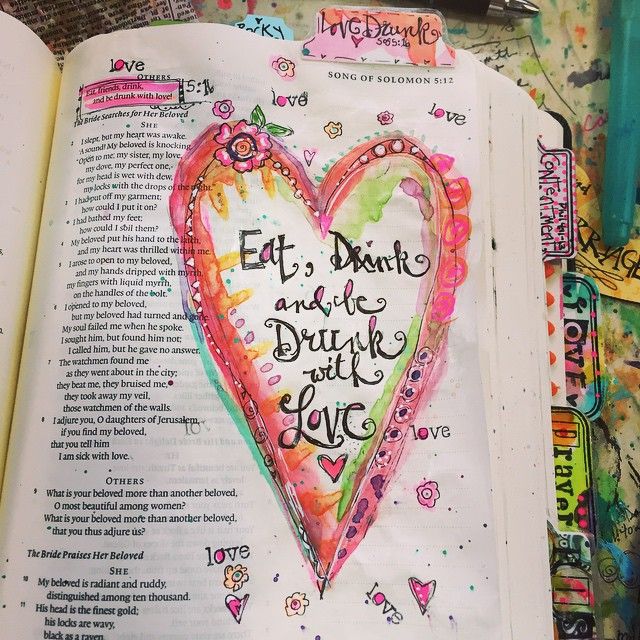 LOVE Drunk
SOS 5:1
ROCKY
SONG OF SOLOMON 5:12
love
OTHERS
Eat, friends, drink,
and be drunk with love!
5:1
The Bride Searches for Her Beloved
SHE
2 I slept, but my heart was awake.
A sound! My beloved is knocking.
"Open to me, my sister, my love,
my dove, my perfect one,
for my head is wet with dew,
my locks with the drops of the night."
3 I had put off my garment;
how could I put it on?
I had bathed my feet;
how could I soil them?
4 My beloved put his hand to the latch,
and my heart was thrilled within me.
5 I arose to open to my beloved,
and my hands dripped with myrrh,
my fingers with liquid myrrh,
on the handles of the bolt.
6 I opened to my beloved,
but my beloved had turned and gone.
My soul failed me when he spoke.
I sought him, but found him not;
I called him, but he gave no answer.
7 The watchmen found me
as they went about in the city;
they beat me, they bruised me,
they took away my veil,
those watchmen of the walls.
8 I adjure you, O daughters of Jerusalem,
if you find my beloved,
that you tell him
I am sick with love.
OTHERS
9 What is your beloved more than another beloved,
O most beautiful among women?
What is your beloved more than another beloved,
that you thus adjure us?
The Bride Praises Her Beloved
SHE
10 My beloved is radiant and ruddy,
distinguished among ten thousand.
11 His head is the finest gold;
his locks are wavy,
black as a raven.
love
love
Eat, Drink
and be
Drunk
with
Love
love
love
love
love
Contentment
LOVE
Prayer